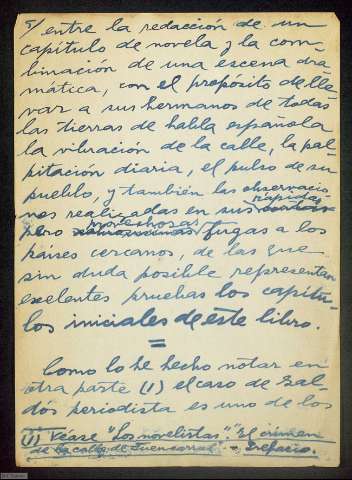 5/ entre la redacción de un
capítulo de novela y la com-
binación de una escena dra-
mática, con el propósito de lle-
var a sus hermanos de todas
las tierras de habla española
la vibración de la calle, la pal-
pitación diaria, el pulso de su
pueblo, y también las observacio-
nes realizadas en sus rápidas
pero provechosas fugas a los
países cercanos, de las que
sin duda posible representan
excelentes pruebas los capítu-
los iniciales de este libro.
=
Como lo he hecho notar en
otra parte (1) el caso de Gal-
dós periodista es uno de los
(1) Véase "Los novelistas". "El crimen
de la calle de Fuencarral" - Prefacio.